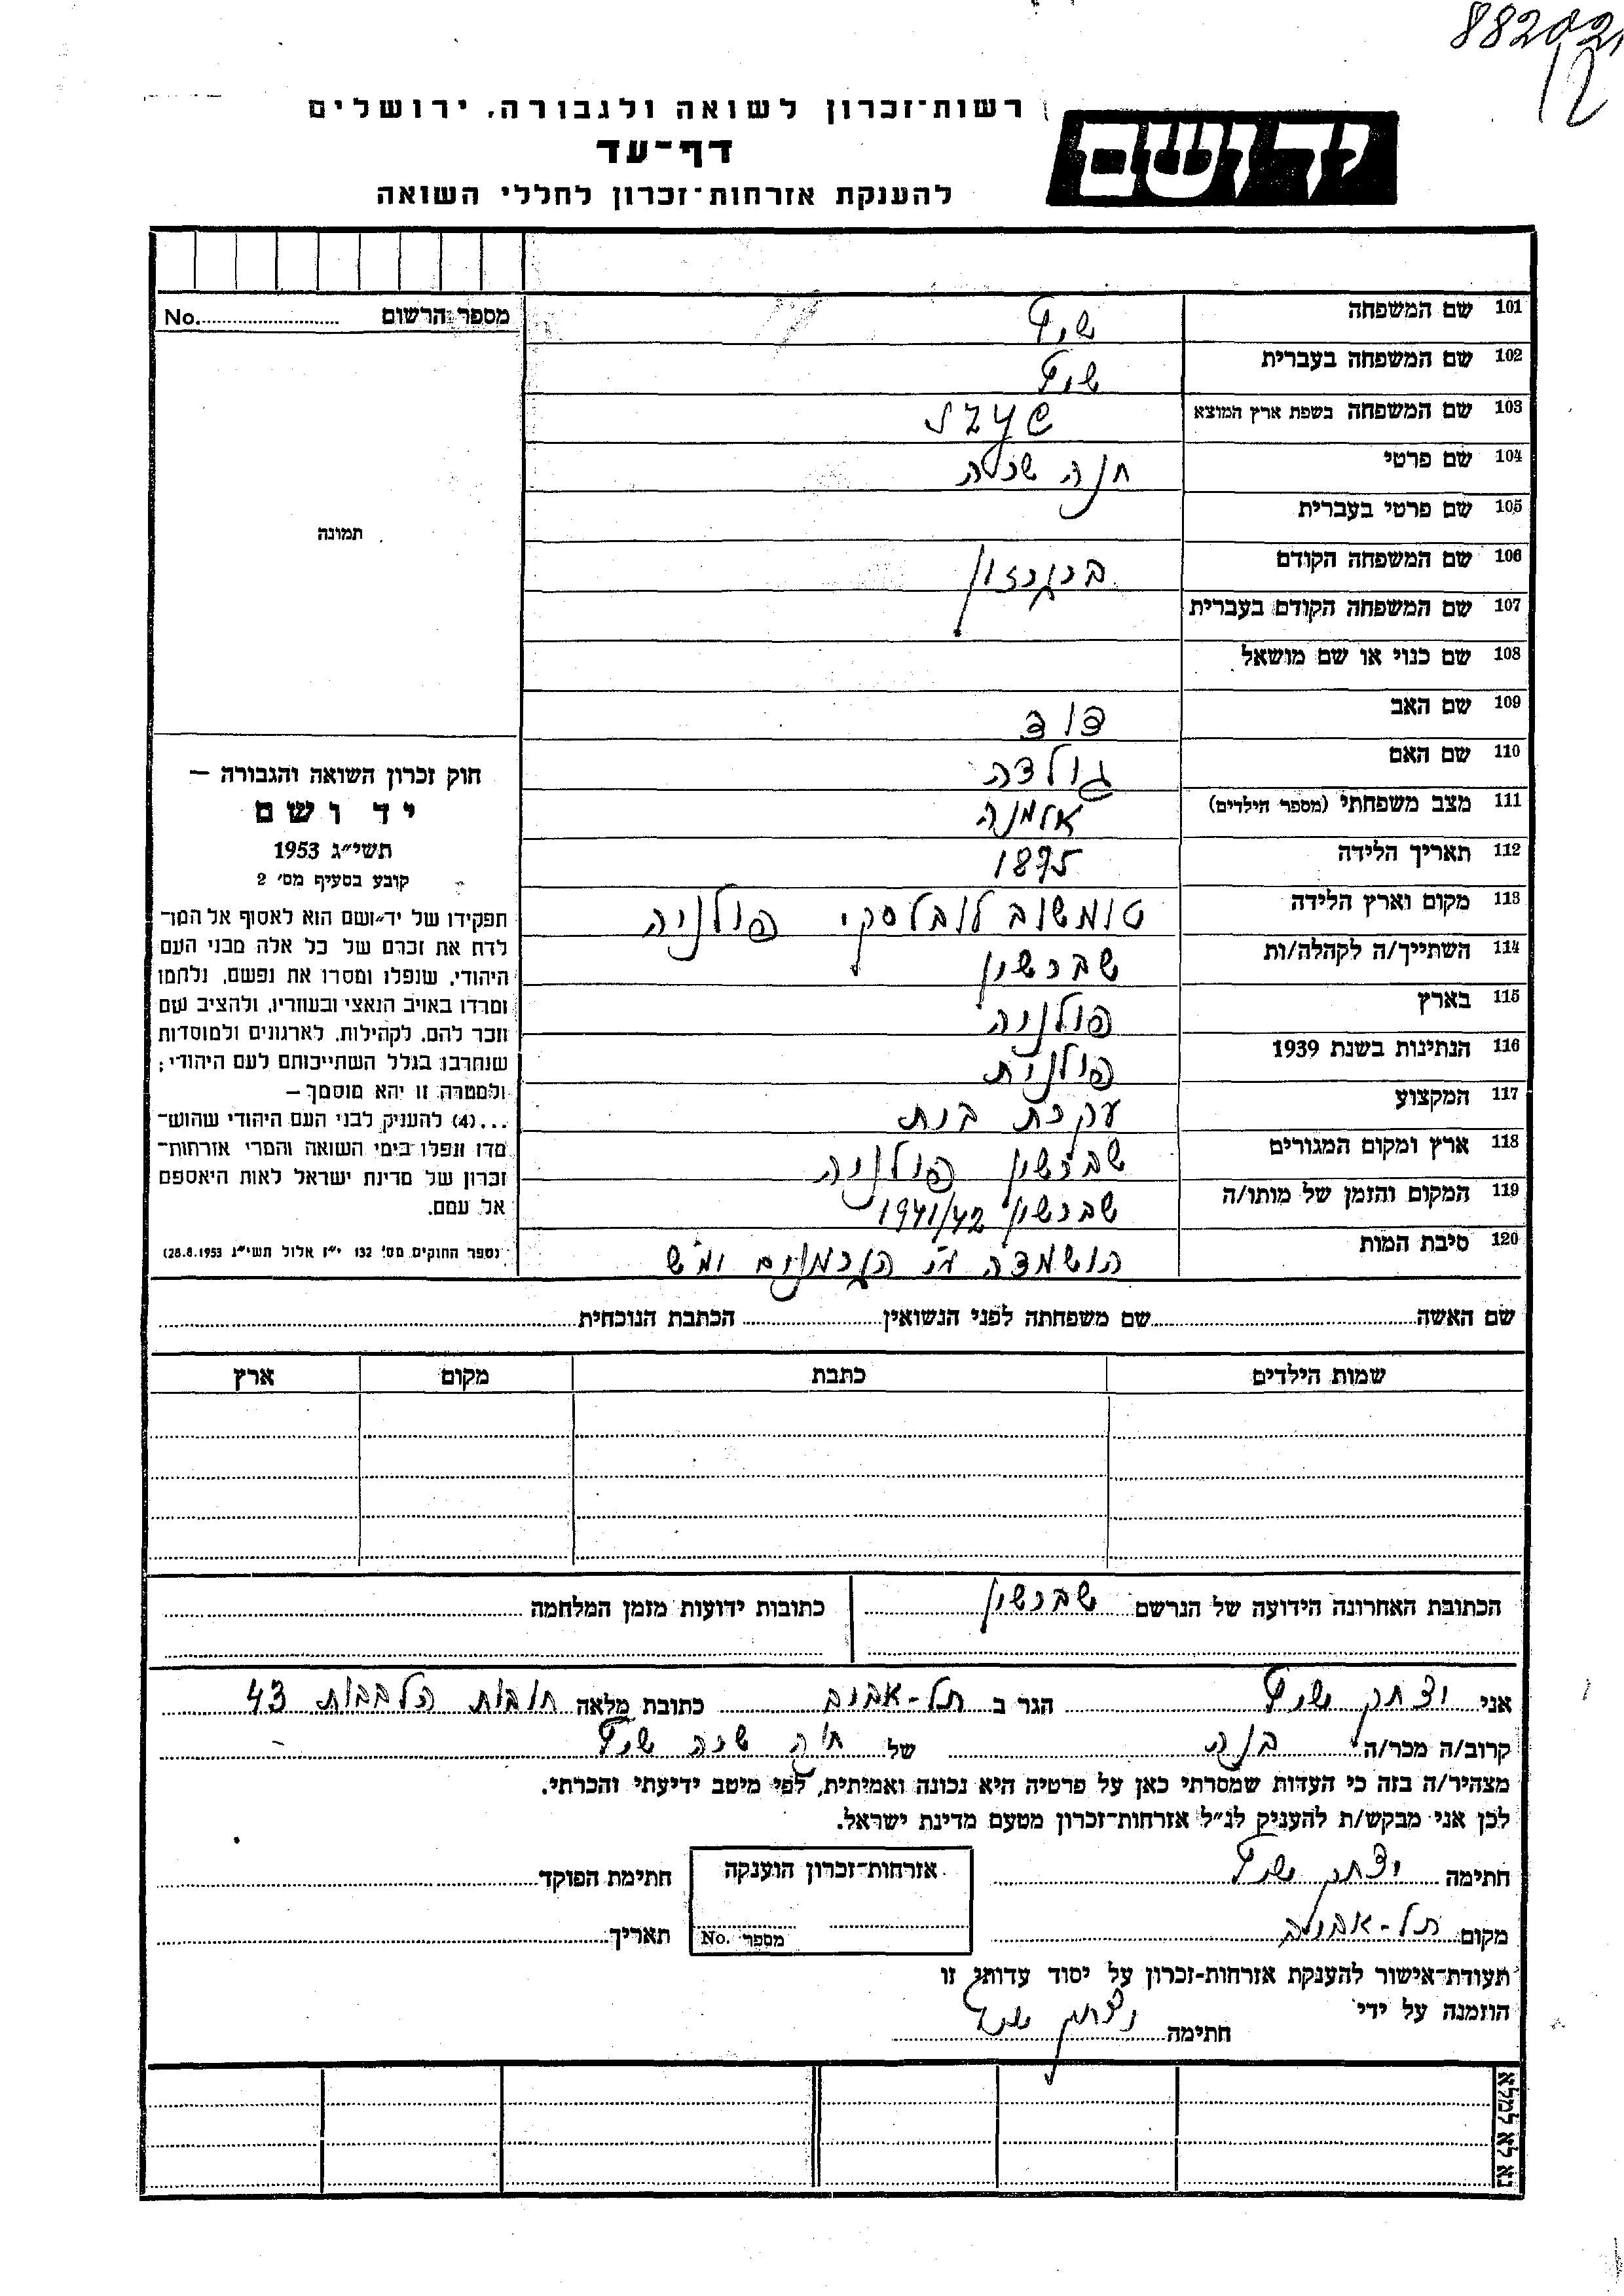 882021
12
רשות־זכרון לשואה ולגבורה, ירושלים
דף־עד
להענקת אזרחות־זכרון לחללי השואה
יד ושם
מספר הרשום No.
תמונה
101 שם המשפחה שיף
102 שם המשפחה בעברית שיף
103 שם המשפחה בשפת ארץ המוצא
104 שם פרטי חנה
105 שם פרטי בעברית
106 שם המשפחה הקודם
107 שם המשפחה הקודם בעברית
108 שם כנוי או שם מושאל
109 שם האב דוד
110 שם האם גולדה
111 מצב משפחתי (מספר הילדים) אלמנה
112 תאריך הלידה 1875
113 מקום וארץ הלידה טומשוב לובלסקי פולניה
114 השתייך/ה לקהלה/ות שברשין
115 בארץ פולניה
116 הנתינות בשנת 1939 פולנית
117 המקצוע עקרת בית
118 ארץ ומקום המגורים שברשין פולניה
119 המקום והזמן של מותו/ה שברשין 1941/42
120 סיבת המות הושמדה ע״י הגרמנים ימ״ש
חוק זכרון השואה והגבורה –
יד ושם
תשי״ג 1953
קובע בסעיף מס׳ 2
תפקידו של יד־ושם הוא לאסוף אל המו־
לדת את זכרם של כל אלה מבני העם
היהודי, שנפלו ומסרו את נפשם, נלחמו
ומרדו באויב הנאצי ובעוזריו, ולהציב שם
וזכר להם, לקהילות, לארגונים ולמוסדות
שנחרבו בגלל השתייכותם לעם היהודי;
ולמטרה זו יהא מוסמך –
...(4) להעניק לבני העם היהודי שהוש־
מדו ונפלו בימי השואה והמרי אזרחות־
זכרון של מדינת ישראל לאות היאספם
אל עמם.
(ספר החוקים מס׳ 132 י״ז אלול תשי״ג 28.8.1953)
שם האשה שם משפחתה לפני הנשואין הכתבת הנוכחית
שמות הילדים כתבת מקום ארץ
הכתובת האחרונה הידועה של הנרשם שברשין כתובות ידועות מזמן המלחמה
אני יצחק שיף הגר ב תל-אביב כתובת מלאה חובות הלבבות 43
קרוב/ה מכר/ה בנה של חנה שיף
מצהיר/ה בזה כי העדות שמסרתי כאן על פרטיה היא נכונה ואמיתית, לפי מיטב ידיעתי והכרתי.
לכן אני מבקש/ת להעניק לנ״ל אזרחות־זכרון מטעם מדינת ישראל.
חתימה יצחק שיף אזרחות־זכרון הוענקה חתימת הפוקד
מקום תל-אביב מספר No. תאריך
תעודת־אישור להענקת אזרחות-זכרון על יסוד עדותי זו
הוזמנה על ידי
חתימה יצחק שיף
נא לא למלא